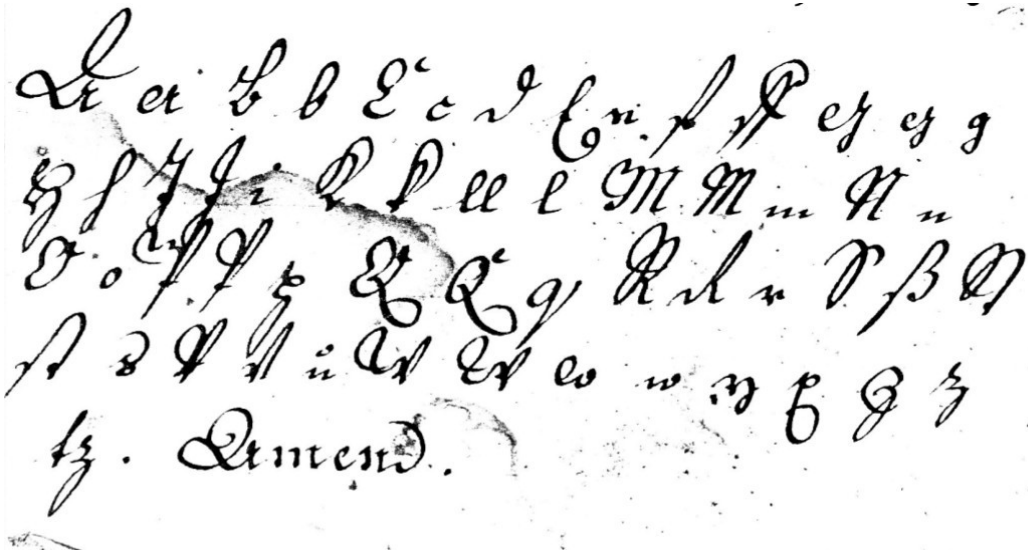 A a B b C c d E e. f ff G g g
H h J J i K k ll l M M m N n
O o P P p Q Q q R R r S ß St
st s V V u W W w w y x Z z
tz. Amend.